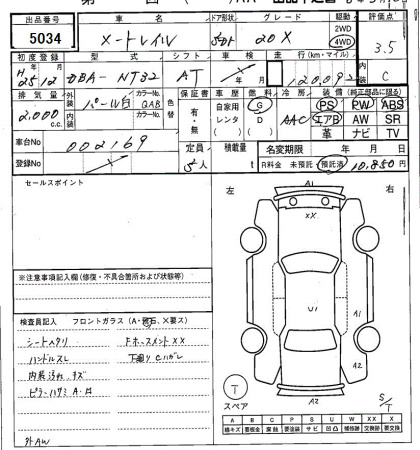 出品番号 車名 ドア形状 グレード 駆動 評価点
5034 X-トレイル 5Dr 20X 2WD 4WD 3.5
初度登録 型式 シフト 車検 走行(km・マイル) 内装
H25年12月 DBA-NT32 AT 年 月 120,092 C
排気量 外装 カラーNo. 色替 保証書 車歴 燃料 冷房 装備(純正部品に限る)
2,000 c.c. パール白 QAB 有・無 自家用 レンタ G D AAC PS PW ABS
内装 カラーNo. エアB AW SR
革 ナビ TV
車台No 002169 定員 5人 積載量 t 名変期限 年 月 日
登録No R料金 未預託 預託済 10,850円
セールスポイント
左 右
A1
XX
U1
A1
A2
A2
※注意事項記入欄(修復・不具合箇所および状態等)
検査員記入 フロントガラス(A・飛石、X要ス)
シートヘタリ FホースメントXX
ハンドルスレ 下廻りCハガレ
内装汚れ、キズ
ピラーハサミA・B
外AW
T
スペア
S/T
A B C P S U W XX X
線キズ 要板金 腐蝕 要塗装 サビ 凹凸 補修跡 交換済 要交換